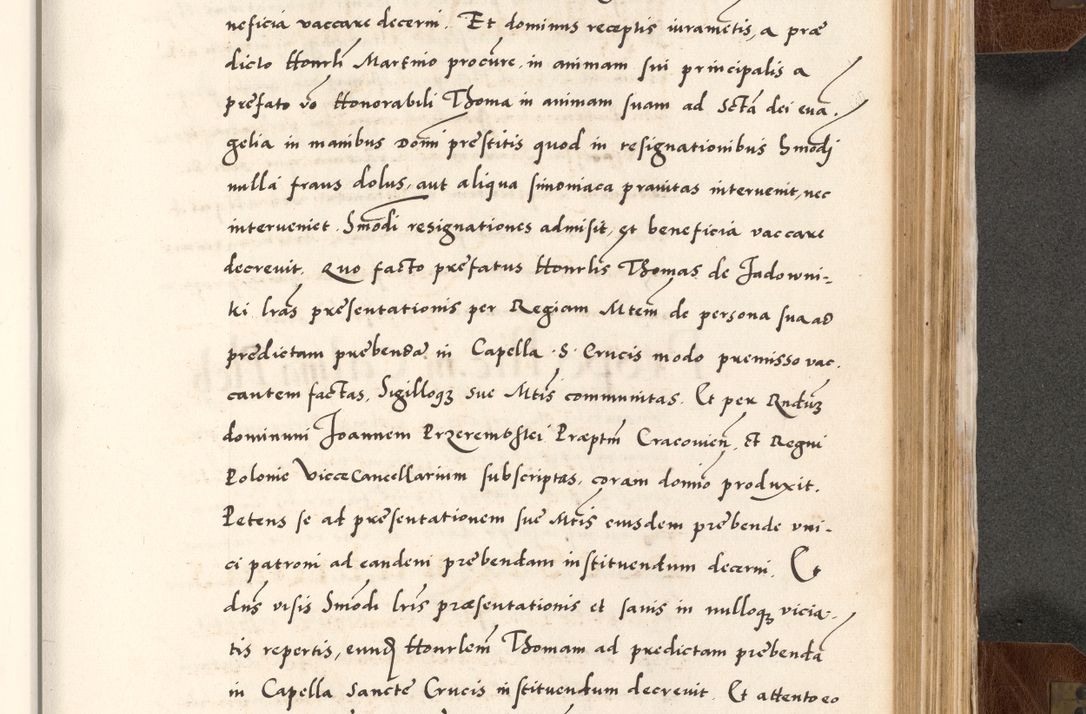 neficia vaccare decerni. Et dominus receptis iuramẽtis, a præ
dicto Honrli Martino procũre, in animam sui principalis a
prefato vo Honorabili Thoma in animam suam ad Sctã dei eva,
gelia in manibus Dom̃i prestitis quod in resignationibus hmodj
nulla fraus dolus, aut aliqua simoniaca pravitas intervenit, nec
interveniet. Hmodi resignationes admisit, et beneficia vaccare
decrevit. Quo facto prefatus Honrlis Thomas de Jadowni-
ki lras presentationis per Regiam Mtem de persona sua ad
predictam prebendã in Capella .S. Crucis modo premisso vac,
cantem factas, Sigilloqꝫ sue Mtis communitas. Et per Rndũ
dominum Joannem Przerembstei Præptm̃ Cracovieñ, et Regni
Polonie ViceCancellarium subscriptas, coram domio produxit.
Petens se ad presentationem sue Mtis eiusdem prebende vni-
ci patroni ad eandem prebendam instituendum decerni. Et
dns visis Hmodi lris præsentationis et sanis in nulloqꝫ vicia-
tis repertis, eund Honrlem Thomam ad predictam prebendã
in Capella Sancte Crucis instituendum decrevit. Et attento eo